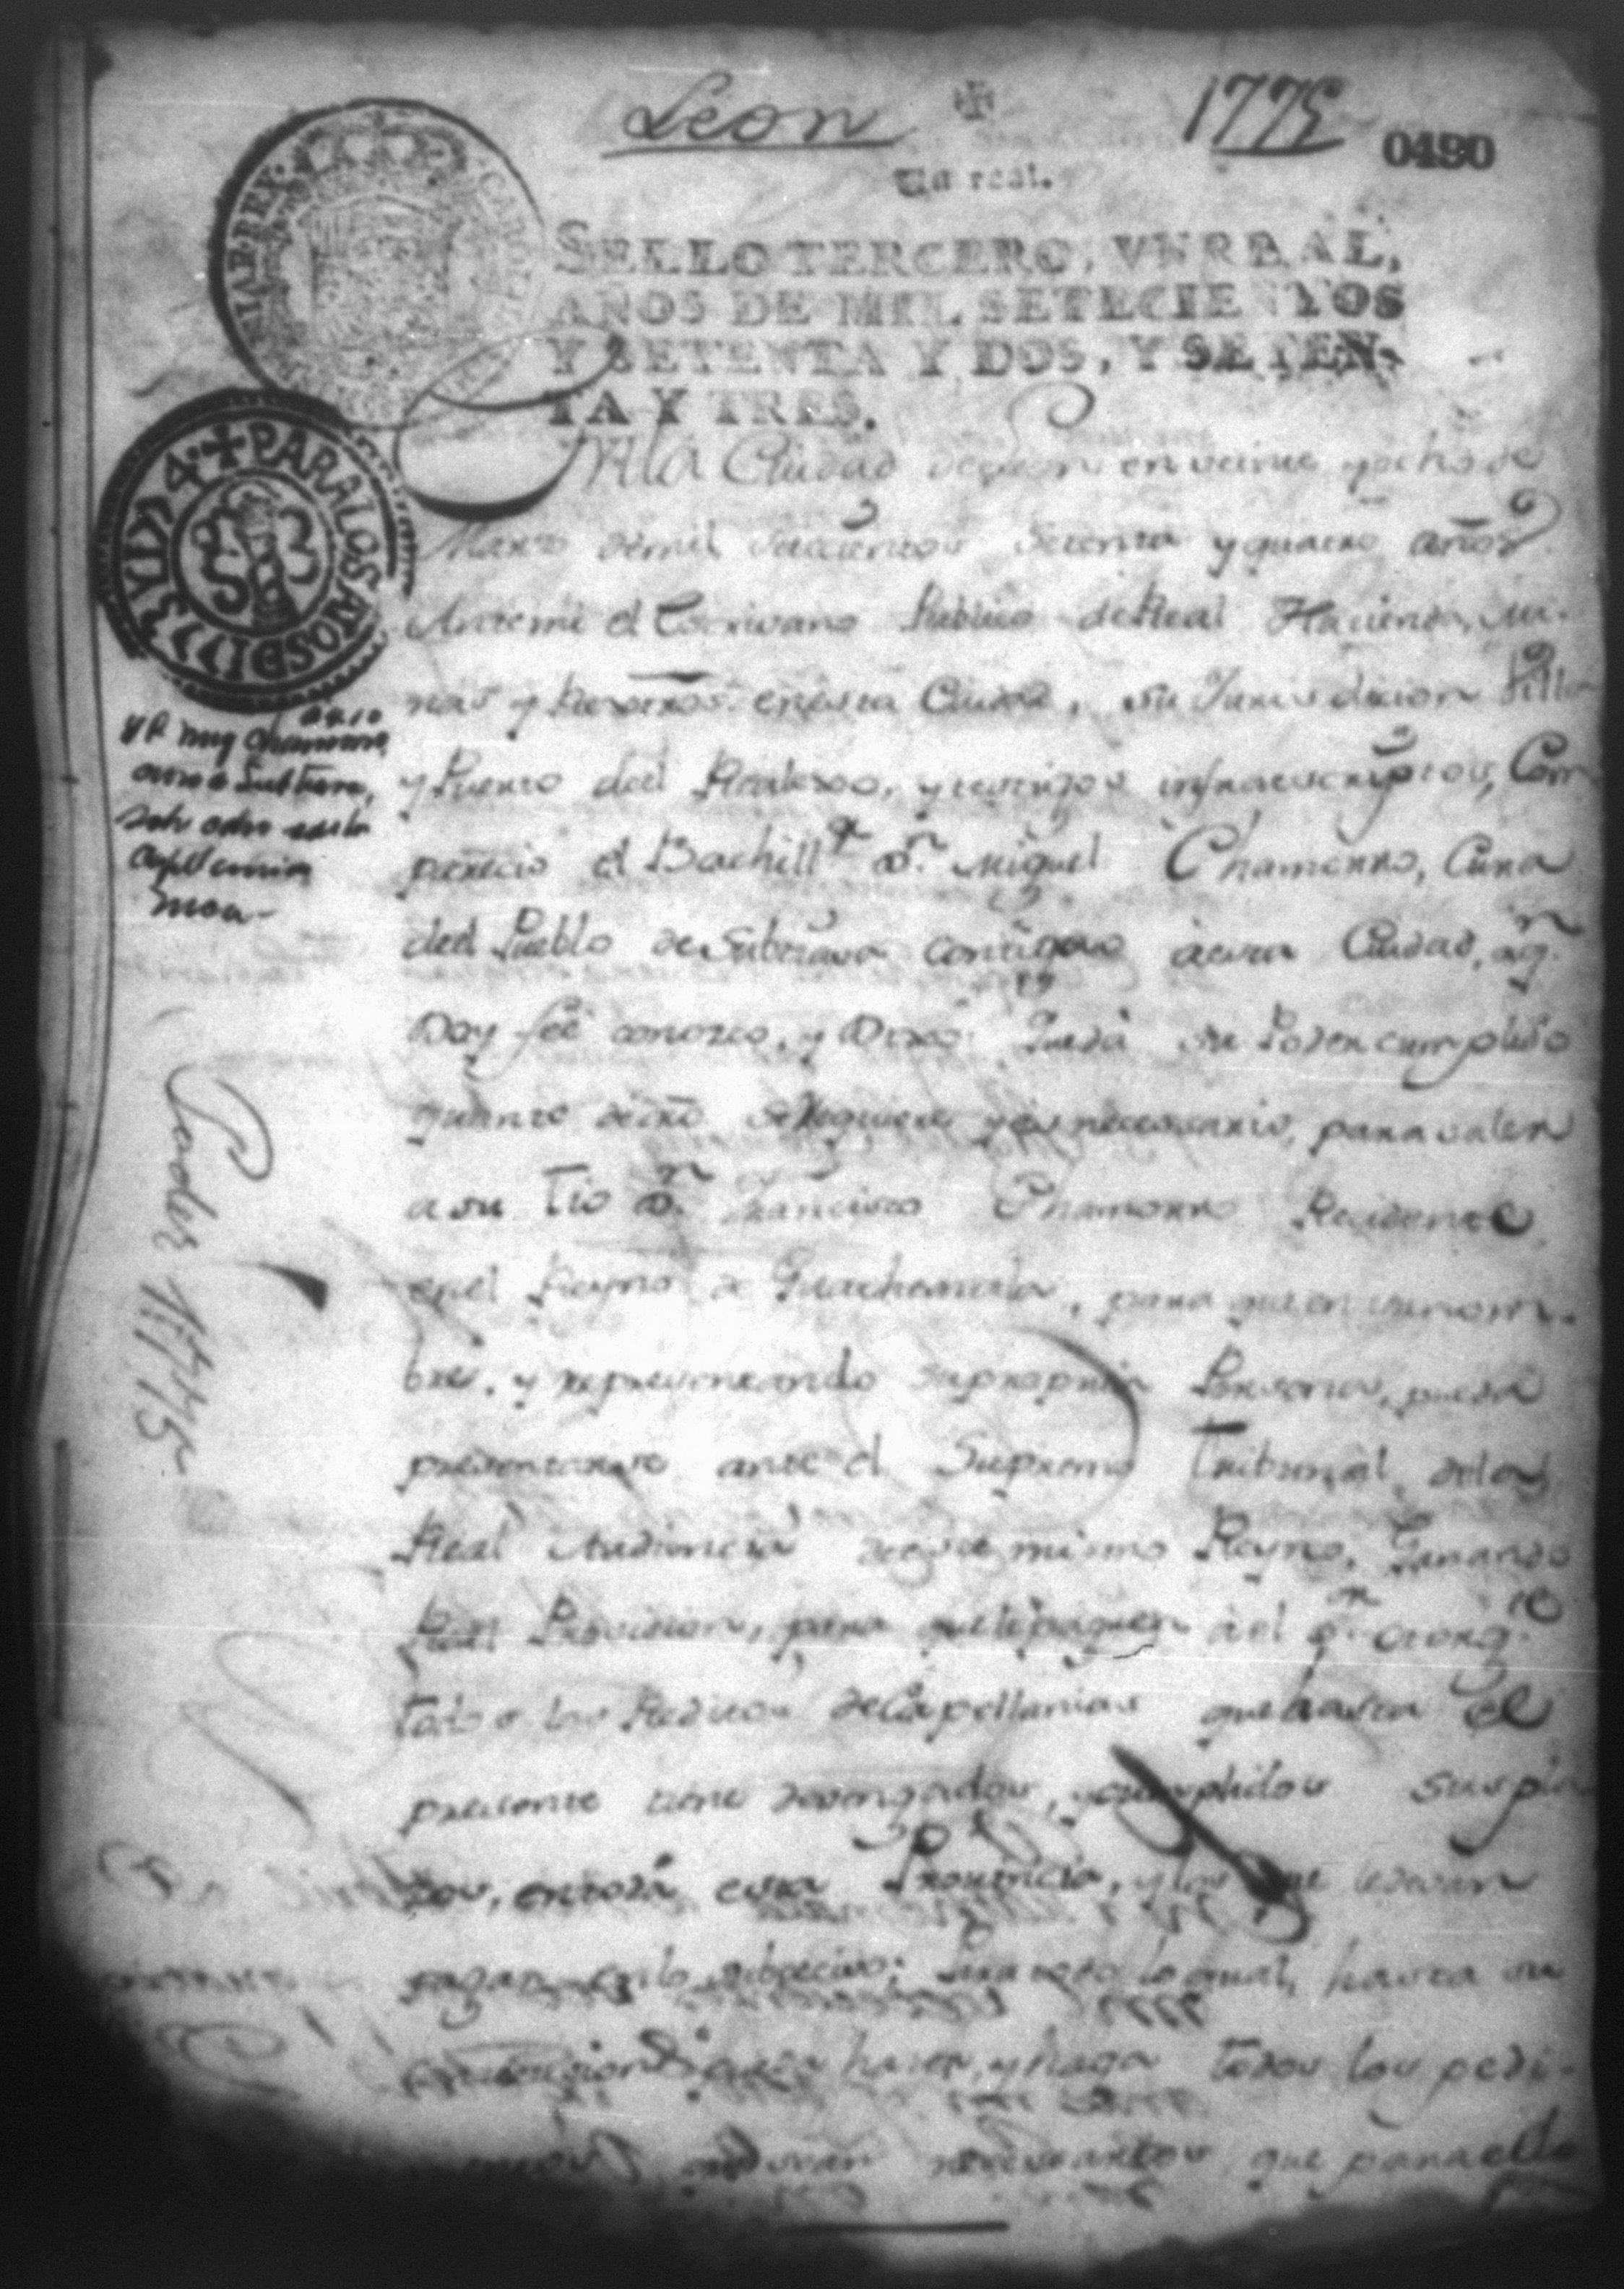 Leon 1775
0480
Un real.
SELLO TERCERO, VN REAL,
AÑOS DE MIL SETECIENTOS
Y SETENTA Y DOS, Y SETEN-
TA Y TRES.
PARA LOS AÑOS DE 1773 Y 1774
En la Ciudad de Leon en veinte y ocho de
Marzo de mil setecientos setenta y quatro años
Ante mi el Escrivano Publico de Real Hacienda, Mi-
nas y Rexistros en esta Ciudad, su Jurisdicion Villa
y Puerto del Realexo, y testigos infraescriptos, Com
parecio el Bachill.r D.n Miguel Chamorro, Cura
del Pueblo de Subtiava contiguo à esta Ciudad, à q.n
Doy feé conozco, y Dixo: Que da su Poder cumplido
quanto de dro. se requiere y es necessario, para valer
a su Tio D.n Francisco Chamorro Recidente
en el Reyno de Guathemala, para que en su nom-
bre, y representando su propria Persona, pueda
presentarse ante el Supremo Tribunal de la
Real Audiencia de este mismo Reyno, Ganando
Real Provicion, para que le paguen à el
todos los Reditos de Capellanias que hasta el
presente tiene devengados, y cumplidos sus pla
zos, en toda esta Provincia, y los que le devan
pagar en lo subcecivo; Para todo lo qual, hasta su
pueda hacer, y haga todos los pedi-
mentos que sean necessarios que para ello
Chamorro
Poder 1775